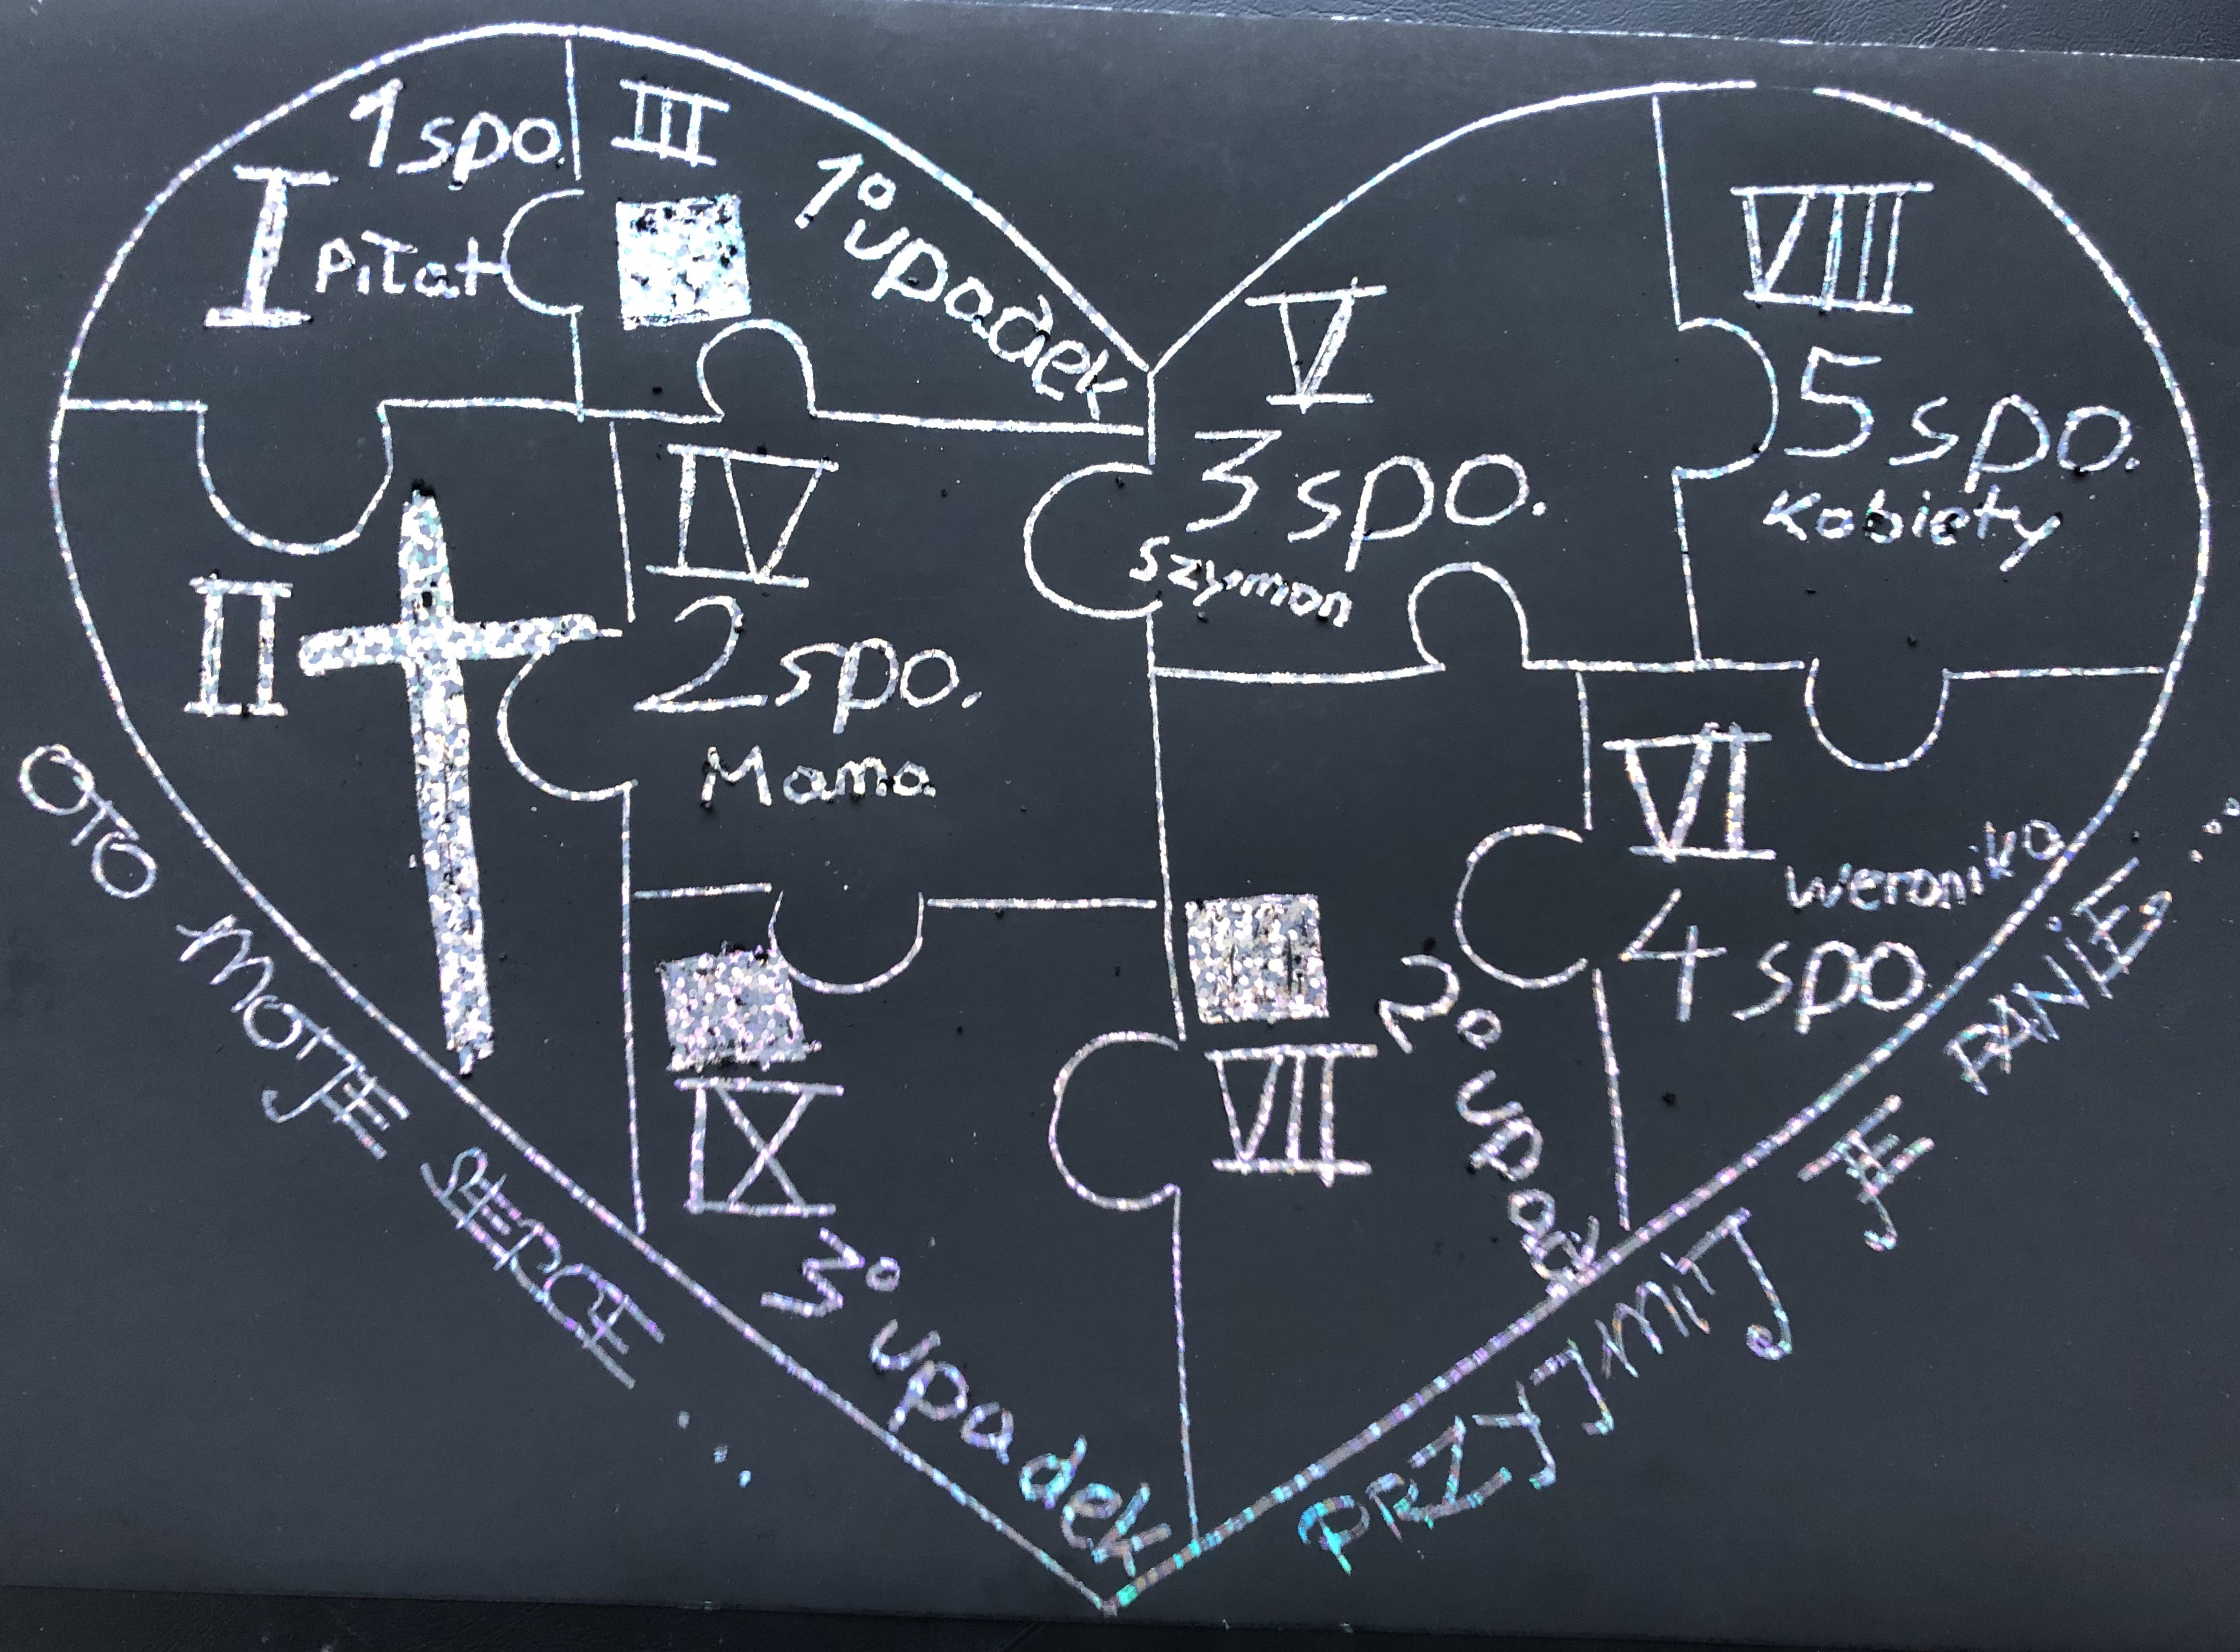 1 spo.
I
Piłat
III
1° upadek
II
IV
2 spo.
Mama
V
3 spo.
Szymon
VIII
5 spo.
Kobiety
VI
Weronika
4 spo.
VII
2° upadek
IX
3° upadek
OTO MOJE SERCE ...
PRZYJMIJ JE PANIE ...